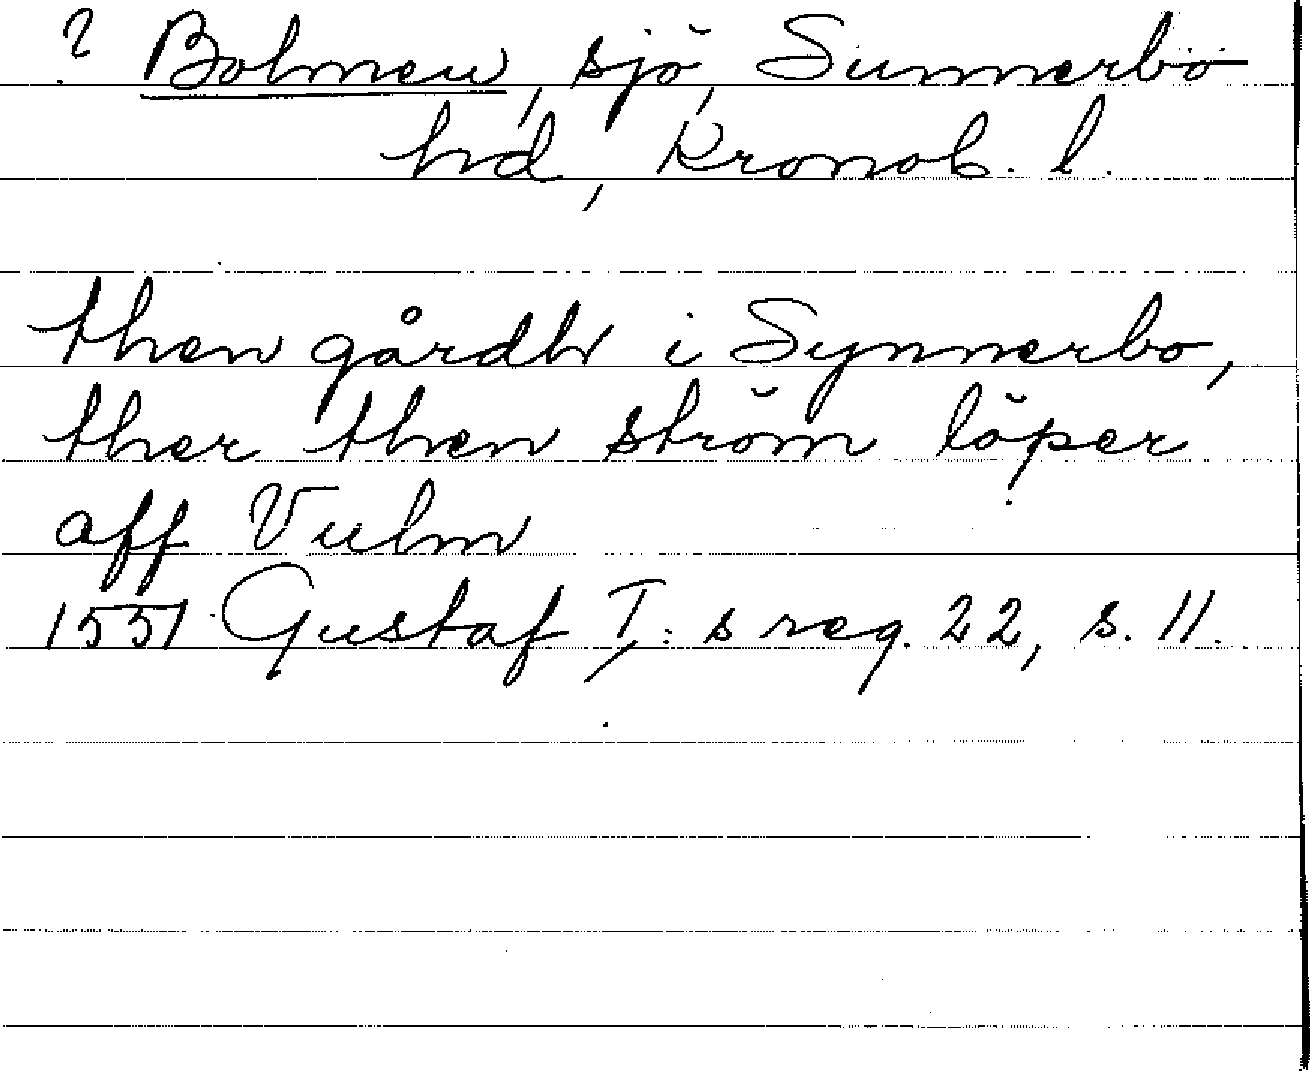 ? Bolmen, sjö, Sunnerbo
hd, Kronob. l.
then gårdh i Synnerbo,
ther then ström löper
aff Vulm
1551 Gustaf I:s reg. 22, s. 11.